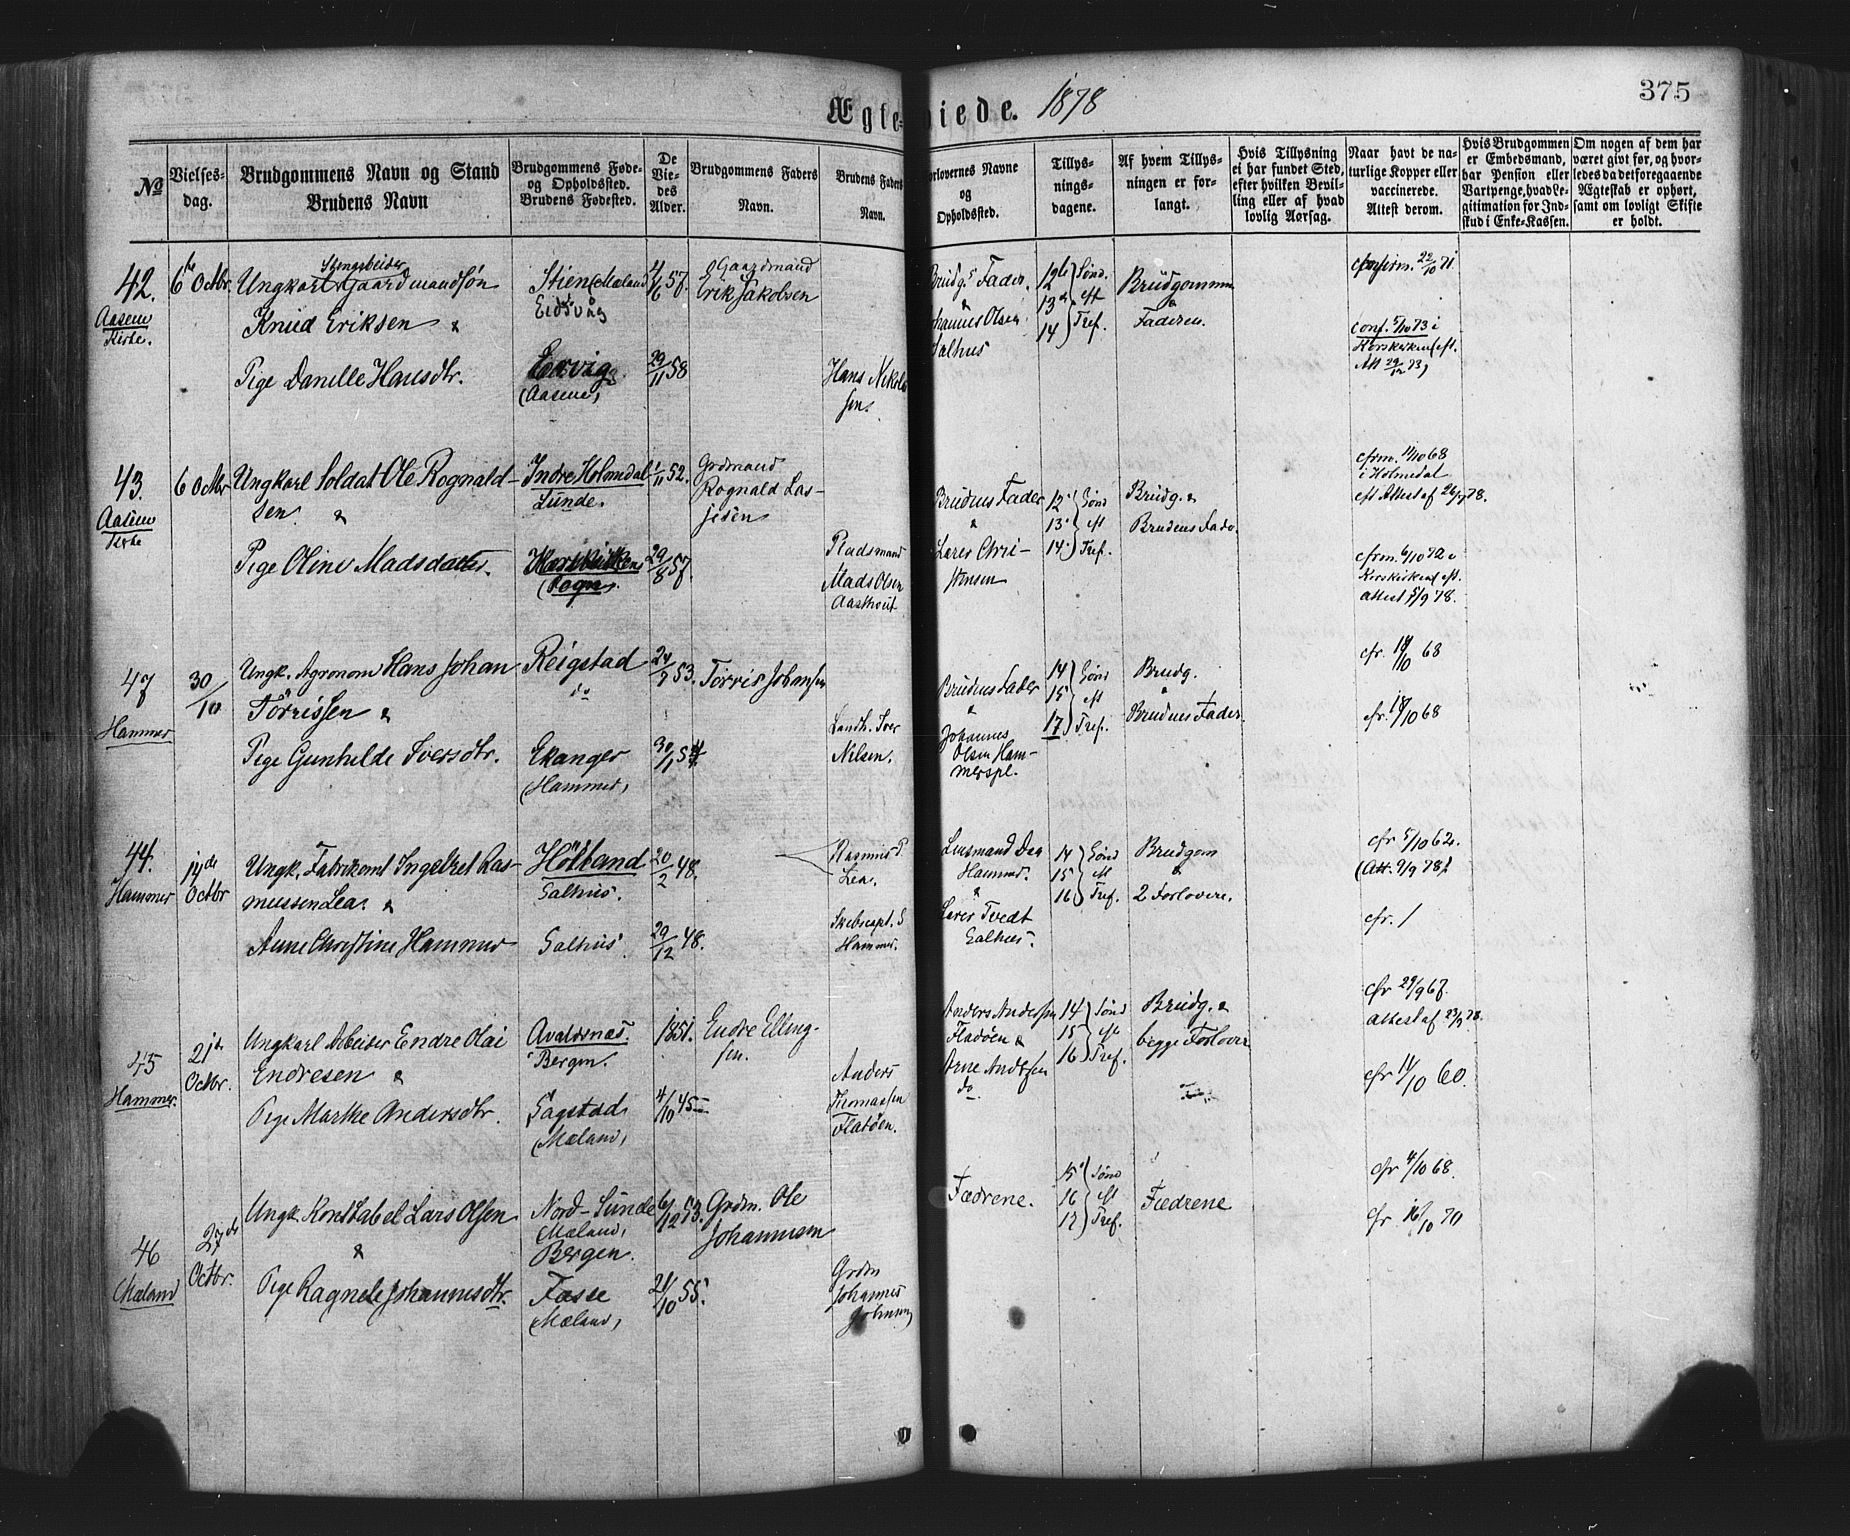 375
Ægteviede. 1878
No
Vielsesdag.
Brudgommens Navn og Stand
Brudens Navn
Brudgommens Føde-
og Opholdssted.
Brudens Fødested.
De
Vie-
des
Alder.
Brudgommens Faders
Navn.
Brudens Faders
Navn.
Forlovernes Navne
og
Opholdssted.
Tillys-
nings-
dagene.
Af hvem Tillys-
ningen er for-
langt.
Hvis Tillysning
ei har fundet Sted,
efter hvilken Bevil-
ling eller af hvad
lovlig Aarsag.
Naar havt de na-
turlige Kopper eller
vaccinerede.
Attest derom.
Hvis Brudgommen
er Embedsmand,
har Pension eller
Vartpenge, hvad Le-
gitimation for Ind-
skud i Enke-Kassen.
Om nogen af dem har
været givt før, og hvor-
ledes da det foregaaende
Ægteskab er ophørt,
samt om lovligt Skifte
er holdt.
42.
Aasene
Kirke.
6te Octbr.
Ungkarl Gaardmandsøn
Knud Eriksen &
Pige Danille Hansdtr.
Stien (Mæland
Eidsvåg
(Aasene)
4/6 57.
29/11 58
Gaardmand
Erik Jakobsen
Hans Nikolai
sen.
Brudgs Fader.
&
Johannes Olsen
Salhus
12te } Sønd.
13de } eft
14 } Tref.
Brudgommen
&
Faderen.
confirm. 22/10 71.
conf. 5/10 73 i
Korskirken eft.
Att 29/12 73)
43.
Aasene
Kirke
6 Octbr
Ungkarl Soldat Ole Rognald-
sen. &
Pige Oline Madsdatter.
Indre Holmedal
Lunde.
Korskirkens
Sogn
1/11 52.
29/8 57.
Grdmand
Rognald Las-
sesen
Pladsmand
Mads Olsen
Aastveit
Brudens Fader
&
Lars Chri-
stensen
12. } Sønd
13. } eft
14. } Tref.
Brudg. &
Brudens Fader
cfrm. 11/10 68
i Holmedal
eft Attest af 26/7 78.
cfrm. 6/10 72 i
Korskirken eft.
attest 5/9 78.
47
Hammer
30/10
Ungk. Agronom Hans Johan
Törrissen &
Pige Gunhilde Iversdtr.
Reigstad
do
Ekanger
(Hammer)
24/7 53.
30/1 54
Törris Johansen
Landh. Iver
Nilsen.
Brudens Fader
&
Johannes
Olsen Ham-
merspl.
14 } Sønd
15 } eft
17 } Tref.
Brudg.
&
Brudens Fader
cfr. 18/10 68
cfr. 18/10 68
44.
Hammer
14de
Octbr
Ungk. Fabrikant Ingebret Ras-
mussen Lea. &
Anne Christine Hammer
Höiland
Salhus.
Salhus.
20/2 48.
29/12 48.
Rasmus P.
Lea.
Skibscapt. S
Hammer.
Lensmand Daa
Hammer.
&
Lars Tvedt
Salhus.
14 } Sønd
15 } eft
16 } Tref.
Brudgom
&
2 Forlovere.
cfr 5/10 62.
(Att. 9/9 78)
cfr. /
45
Hammer.
21de
Octbr.
Ungkarl Arbeider Endre Olai
Endresen &
Pige Marthe Andersdtr.
Avaldsnes.
Bergen.
Sagstad
(Mæland)
1851.
4/10 45
Endre Elling-
sen.
Anders
Thomassen
Flatöen.
Anders Andersen
Fladöen &
Arne Andersen
do
14 } Sønd
15 } eft
16 } Tref.
Brudg. &
begge Forlover
cfr 29/9 67.
attest af 23/9 78.
cfr 14/10 60.
46
Mæland
27de
Octbr.
Ungk. Konstabel Lars Olsen
&
Pige Ragnele Johannesdtr.
Nord-Lunde
(Mæland)
Bergen.
Fosse
(Mæland)
6/12 53.
21/10 55.
Grdm. Ole
Johannesen
Grdm
Johannes
Johnsen
Fædrene.
15 } Sønd
16 } eft
17 } Tref.
Fædrene
cfr 4/10 68.
cfr. 16/10 70